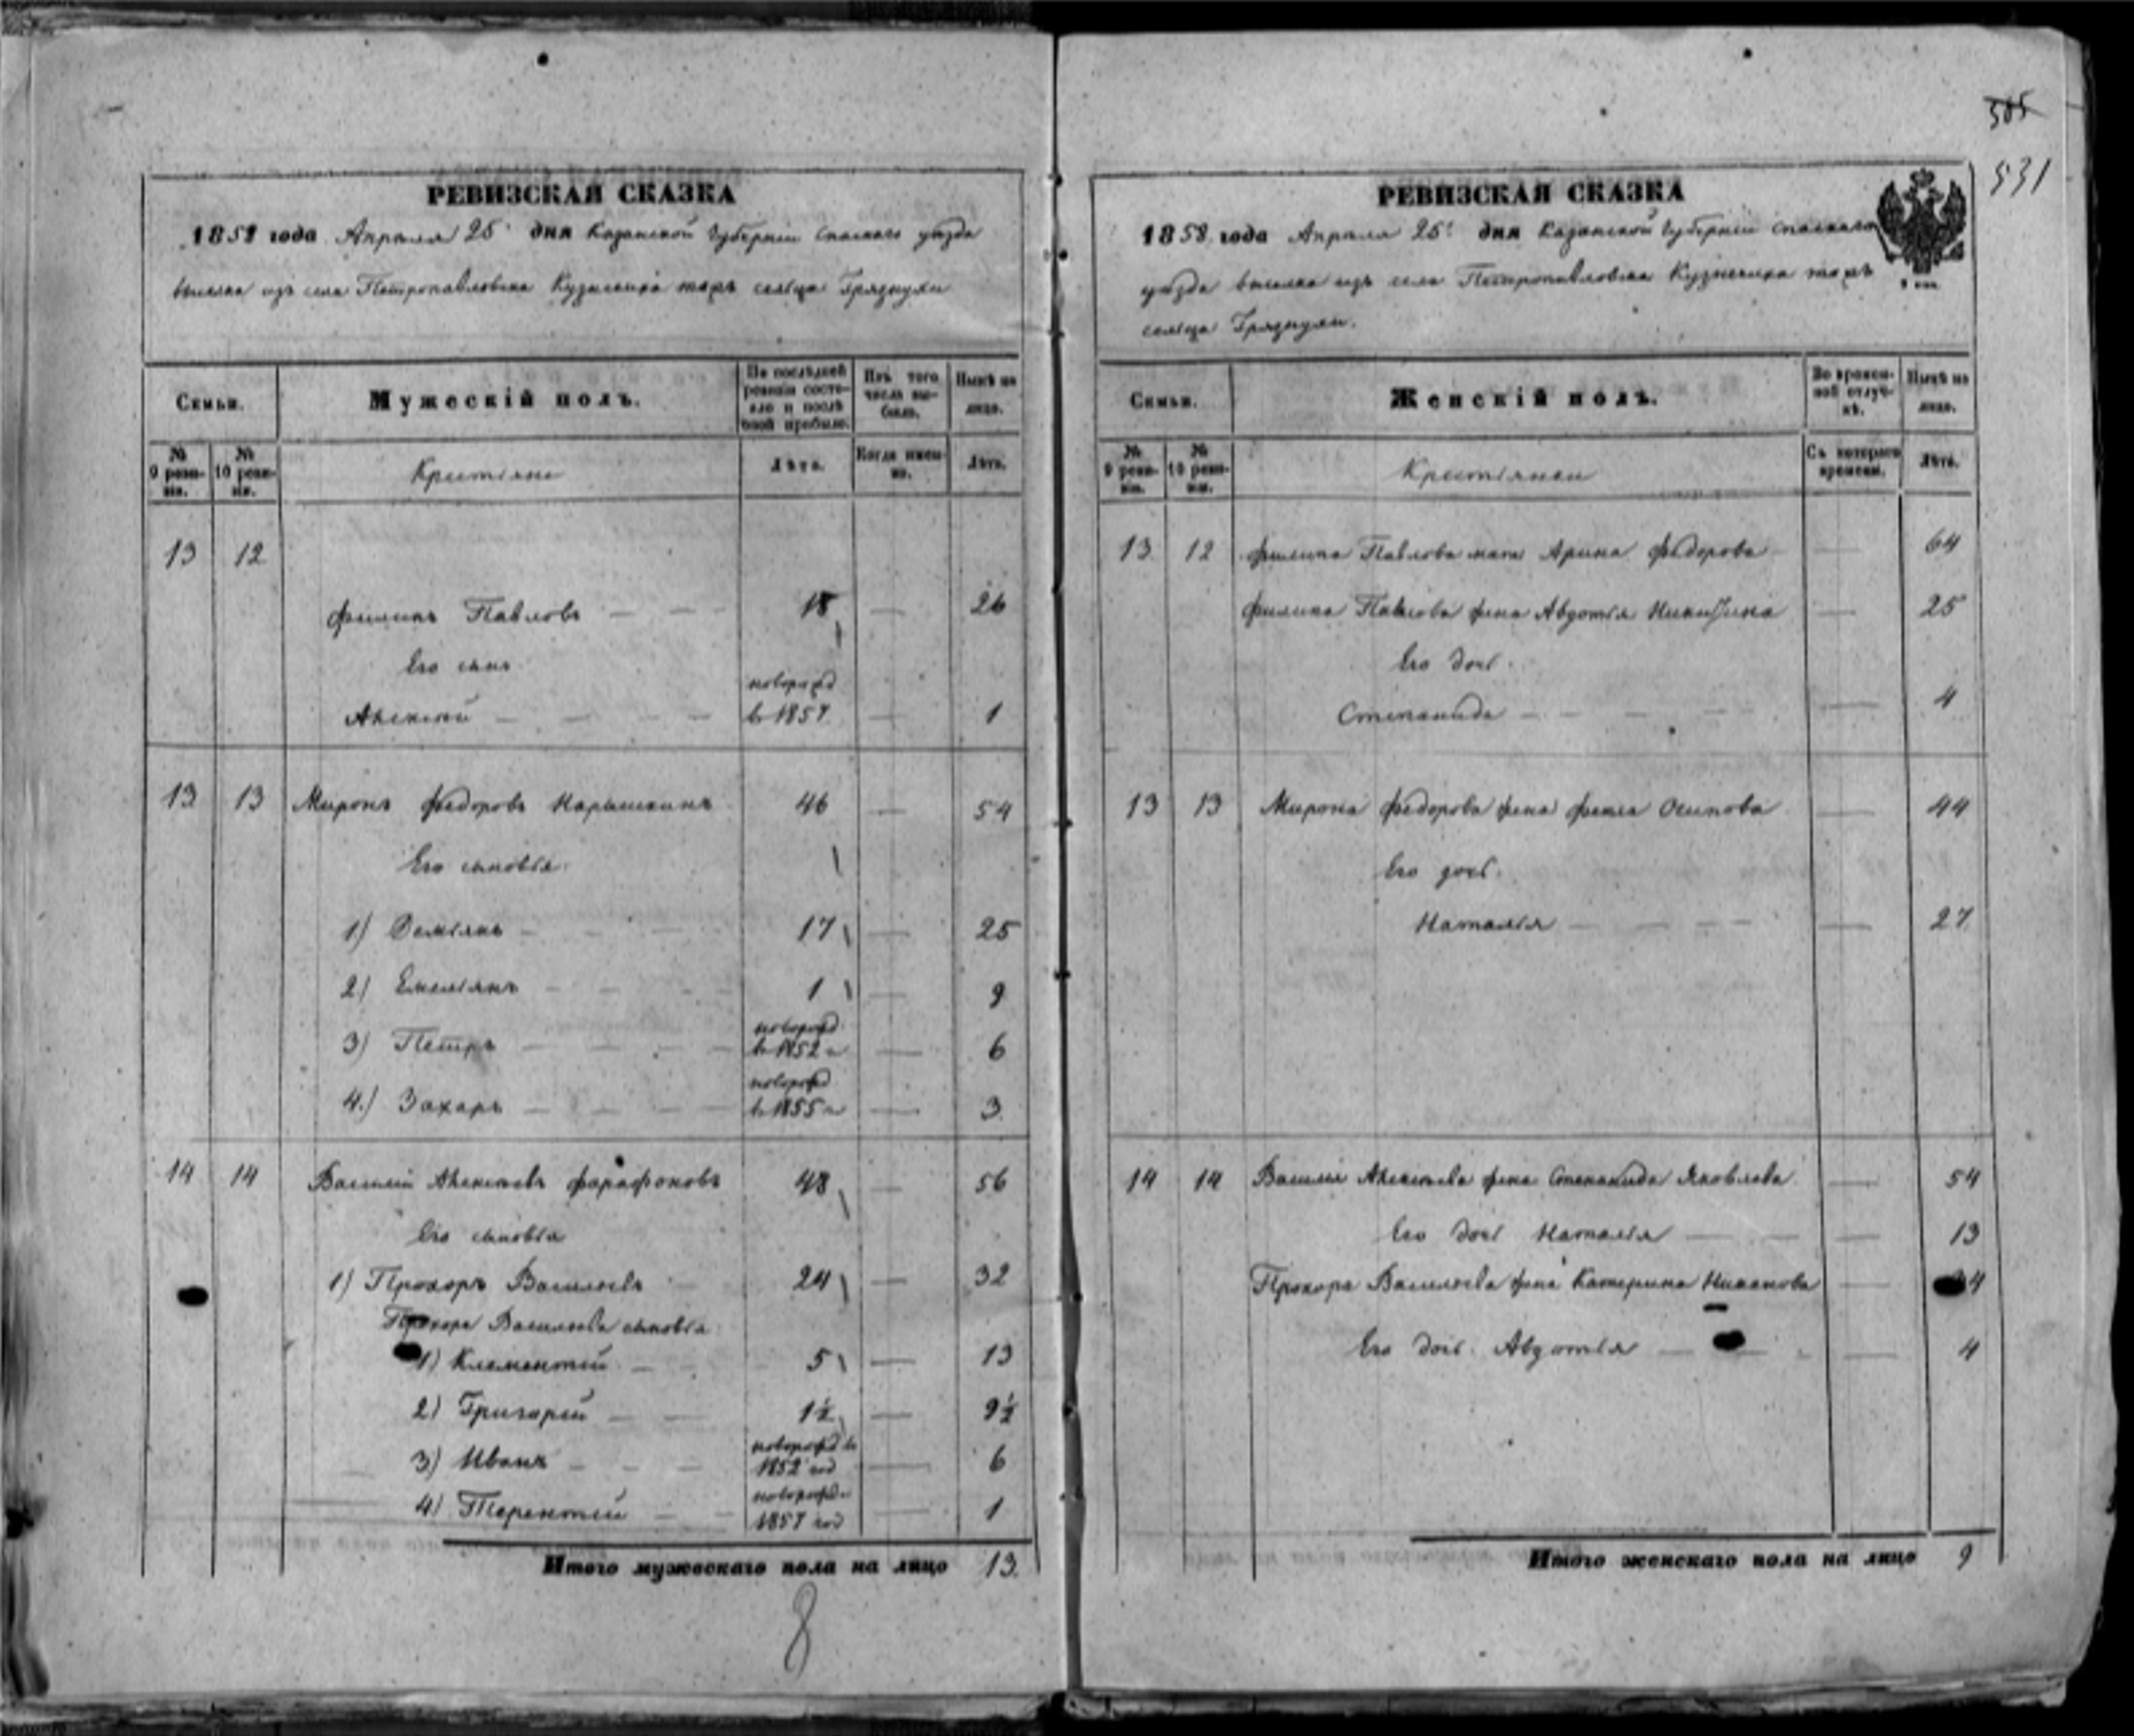 505
531
РЕВИЗСКАЯ СКАЗКА
1858 года Апреля 25 дня Казанской Губернии Спаскаго уѣзда
из села Петропавловска Кузнечиха тожъ сельца Грязнухи
Семьи.
Мужескій полъ.
По послѣдней ревизіи состояло и послѣ оной прибыло.
Изъ того числа выбыло.
Нынѣ на лицо.
№ 9 ревизіи.
№ 10 ревизіи.
Крестьяне
Лѣта.
Когда именно.
Лѣта.
13 12
Филипъ Павловъ — — 18 — 26
Его сынъ
Алексей — — — новорожд в 1857 — 1
13 13 Миронъ Федоровъ 46 — 54
Его сыновья
1) Демьянъ — — 17 — 25
2) Емельянъ — — 1 — 9
3) Петръ — — — новорожд в 1852 г — 6
4.) Захаръ — — — новорожд в 1855 г — 3
14 14 Василий Алексеевъ Фарафоновъ 48 — 56
Его сыновья
1) Прохоръ Васильевъ — 24 — 32
Прохора Васильева сыновья
1) Климентий — 5 — 13
2) Григорий — — 1½ — 9½
3) Иванъ — — — новорожд в 1852 год — 6
4) Терентий — — новорожд 1857 год — 1
Итого мужескаго пола на лицо 13.
8
РЕВИЗСКАЯ СКАЗКА
1858 года Апреля 25 дня Казанской Губернии Спаскаго
уѣзда из села Петропавловска Кузнечиха тожъ
сельца Грязнухи.
Семьи.
Женскій полъ.
Во временной отлучкѣ.
Нынѣ на лицо.
№ 9 ревизіи.
№ 10 ревизіи.
Крестьянки
Съ котораго времени.
Лѣта.
13 12 Филипа Павлова мать Арина Федорова — 64
Филипа Павлова жена Авдотья Никитина — 25
Его дочь
Степанида — — — — 4
13 13 Мирона Федорова жена Осипова — 44
Его дочь
Наталья — — — — 27
14 14 Василия Алексеева жена Степанида Яковлева — 54
Его дочь Наталья — — 13
Прохора Васильева жена Катерина — 4
Его дочь Авдотья — — 4
Итого женскаго пола на лицо 9